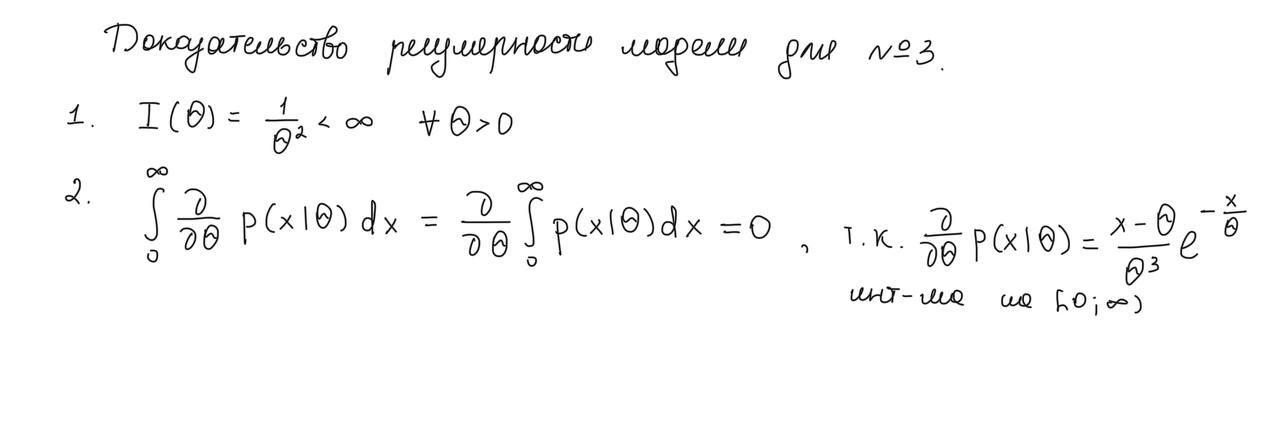 Доказательство регулярности модели для №3.
1. I(θ) = 1/θ² < ∞ ∀ θ > 0
2. ∫₀^∞ ∂/∂θ p(x|θ) dx = ∂/∂θ ∫₀^∞ p(x|θ) dx = 0 , т.к. ∂/∂θ p(x|θ) = (x - θ)/θ³ e^(-x/θ)
инт-ма на [0; ∞)